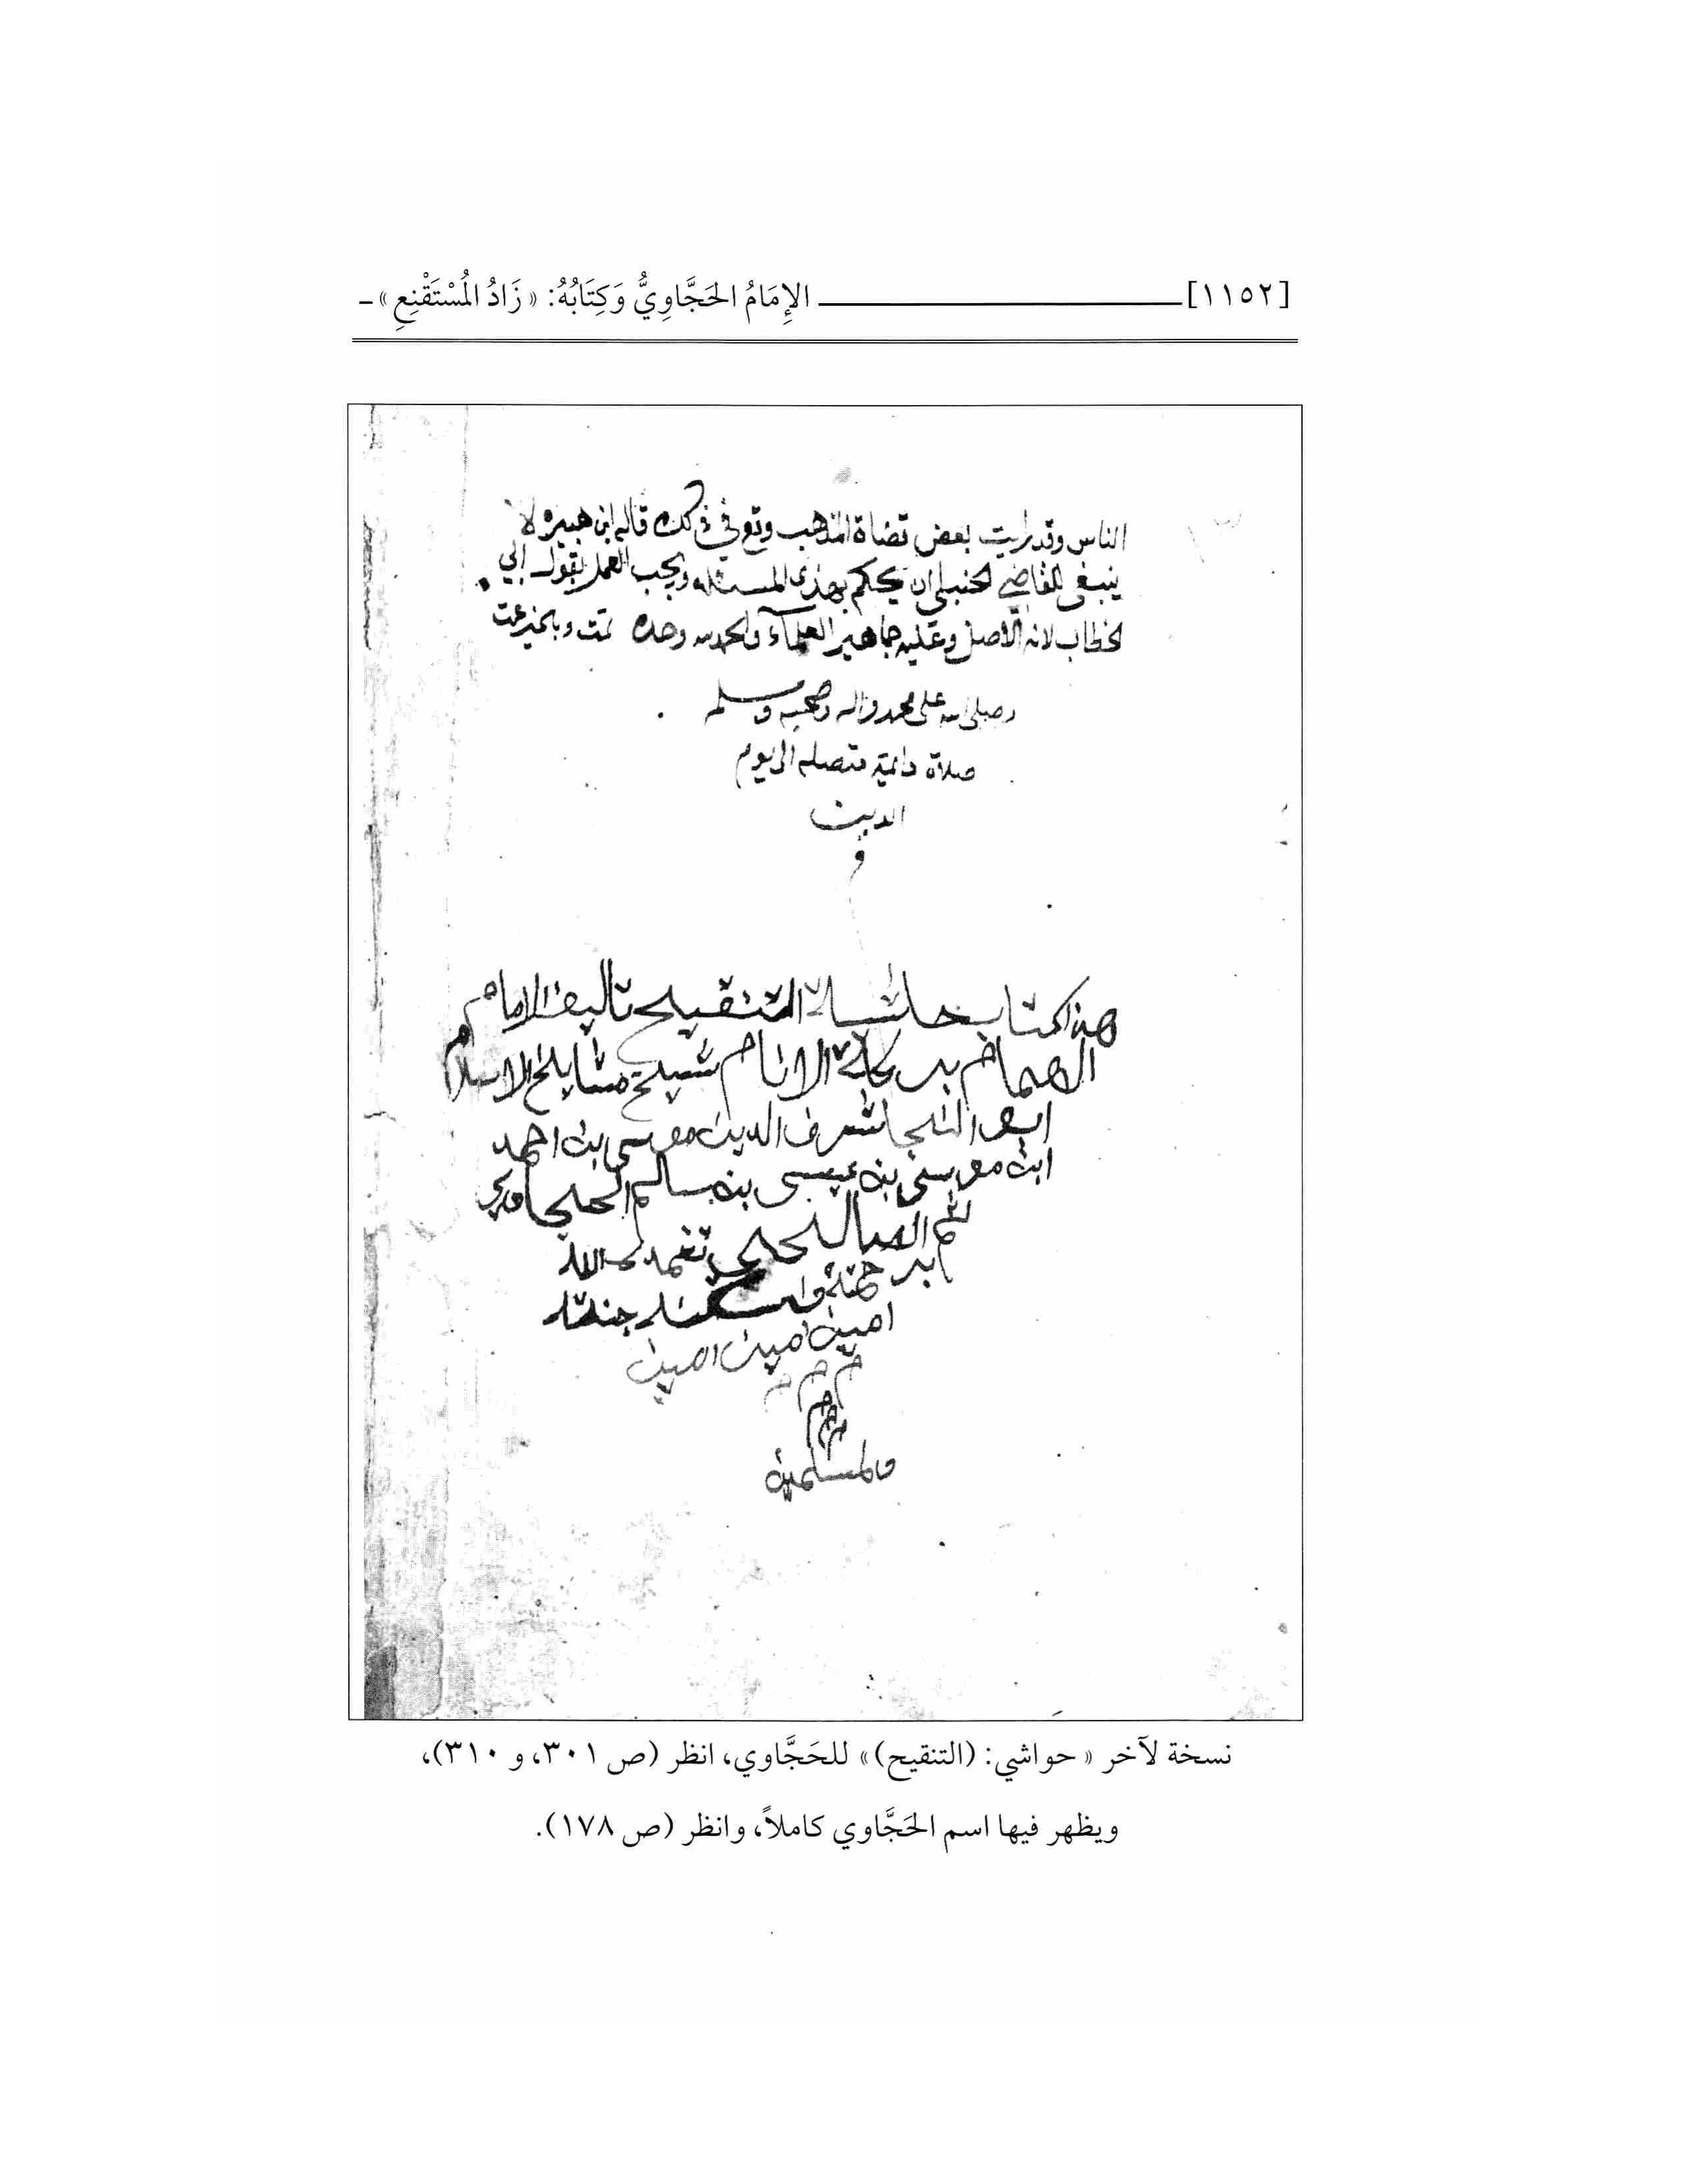 [١١٥٢] الإِمَامُ الحَجَّاوِيُّ وَكِتَابُهُ: « زَادُ المُسْتَقْنِعِ »
الناس وقد رايت بعض قضاة المذهب وقع في ذلك قاله ابن هبيره لا
ينبغي للقاضي الحنبلي ان يحكم بهذه المسئله ويجب العمل بقول ابي
الخطاب لانه الاصل وعليه جماهير العلمآء والحمد لله وحده تمت وبالخير عمت
وصلى الله على محمد واله وصحبه وسلم
صلاة دائمة متصله الى يوم
الدين
هذا كتاب حاشية التنقيح تاليف الامام
الهمام بركة الانام شيخ مشايخ الاسلام
ابو النجا شرف الدين موسى ابن احمد
ابن موسى بن عيسى بن سالم الحجاوي
ثم الصالحي تغمده الله
برحمته واسكنه جنته
امين امين امين
م م م
والمسلمين
نسخة لآخر « حواشي: (التنقيح) » للحَجَّاوي، انظر (ص ٣٠١، و ٣١٠)،
ويظهر فيها اسم الحَجَّاوي كاملاً، وانظر (ص ١٧٨).